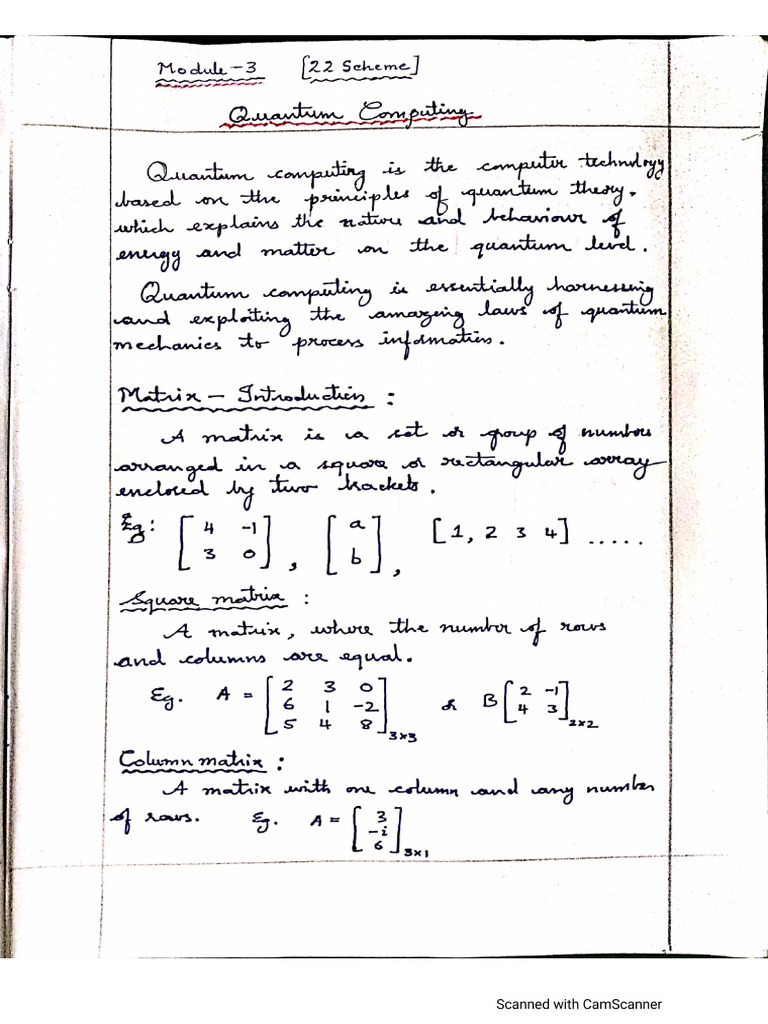 Module-3 [22 Scheme]
Quantum Computing
Quantum computing is the computer technology
based on the principles of quantum theory.
which explains the nature and behaviour of
energy and matter on the quantum level.
Quantum computing is essentially harnessing
and exploiting the amazing laws of quantum
mechanics to process information.
Matrix - Introduction :
A matrix is a set or group of numbers
arranged in a square or rectangular array
enclosed by two brackets.
Eg: [4 -1
3 0], [a
b], [1, 2 3 4] .....
Square matrix :
A matrix, where the number of rows
and columns are equal.
Eg. A = [2 3 0
6 1 -2
5 4 8]3×3 or B [2 -1
4 3]2×2
Column matrix :
A matrix with one column and any number
of rows. Eg. A = [3
-i
6]3×1
Scanned with CamScanner